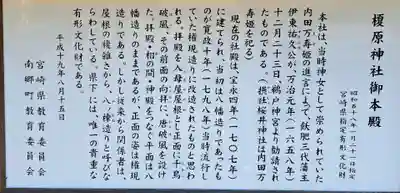 榎原神社御本殿
昭和五十八年一月二十一日指定
宮崎県指定有形文化財
本社は、当時神女として崇められていた
内田万寿姫の進言によって、飫肥三代藩主
伊東祐久公が万治元年(一六五八年)
十二月二十三日、鵜戸神宮より勧請され
たものである。(摂社桜井神社は内田万
寿姫を祀る)
現在の社殿は、宝永四年(一七〇七年)
に建てられ、当初は八幡造りであったも
のが寛政十年(一七九八年)当時流行し
ていた権現造りに改造されたものと思わ
れる。拝殿を入母屋屋根とし正面に千鳥
破風、その前面の向拝に唐破風を設け
た。拝殿・相の間・神殿をつなぐ平面は八
幡造りのままであるが、正面の姿は権現
造りである。しかし従来から関係者は、
屋根の複雑さから、八ツ棟造りと呼びな
らわしている。県下には、唯一の貴重な
有形文化財である。
平成十九年八月十五日
宮崎県教育委員会
南郷町教育委員会